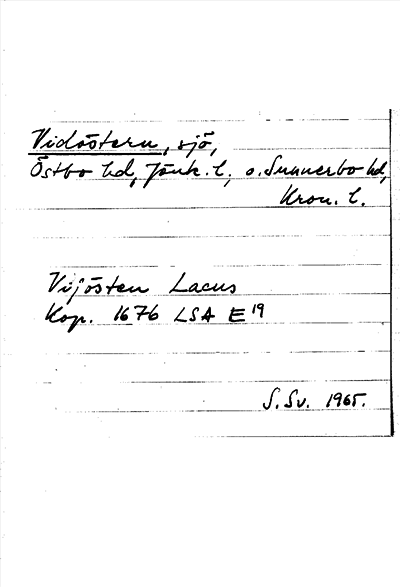 Vidöstern, sjö,
Östbo hd, Jönk. l., o. Sunnerbo hd,
Kron. l.
Vijösten Lacus
Kop. 1676 LSA E 19
S. Sv. 1965.